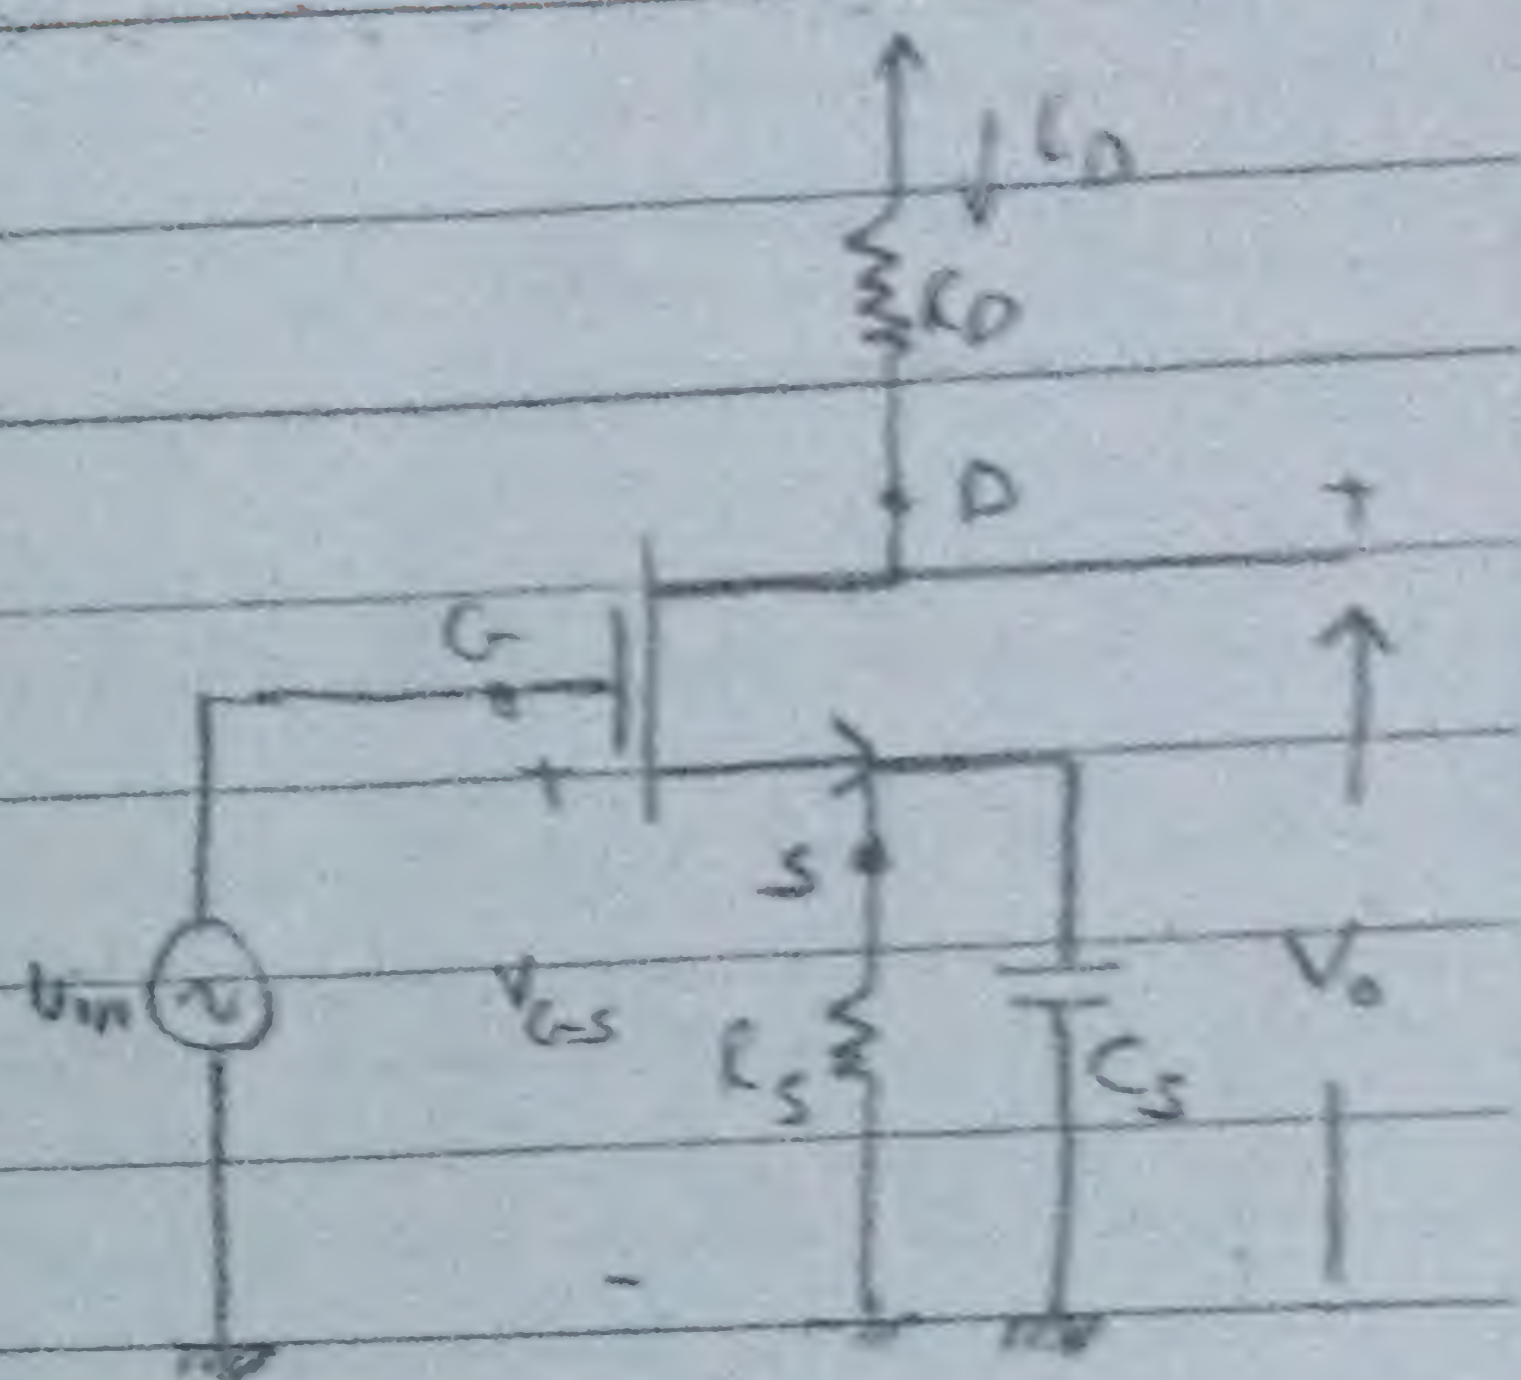 i_D
R_D
D
+
G
+
S
V_in
~
V_GS
R_S
C_S
V_o
-